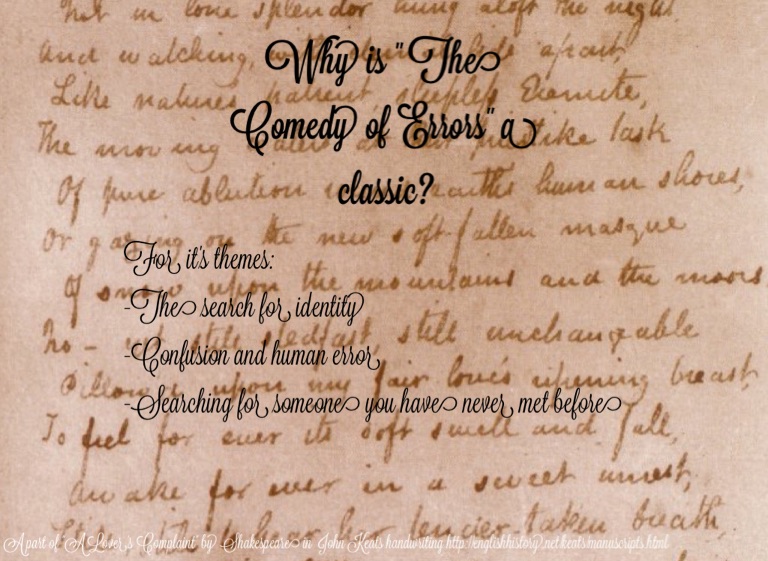 Not in lone splendor hung aloft the night
Why is "The
and watching, apart,
Like natures patient, sleepless Eremite,
Comedy of Errors" a
The moving task
classic?
Of pure ablution human shores,
Or gazing on the new soft-fallen masque
For it's themes:
Of snow upon the mountains and the moors
-The search for identity
No - still unchangeable
-Confusion and human error
Pillow'd upon my fair love's ripening breast
-Searching for someone you have never met before
To feel for ever its soft swell and fall,
Awake for ever in a sweet unrest,
to hear her tender-taken breath,
A part of "A Lover's Complaint" by Shakespeare in John Keats handwriting http://englishhistory.net/keats/manuscripts.html